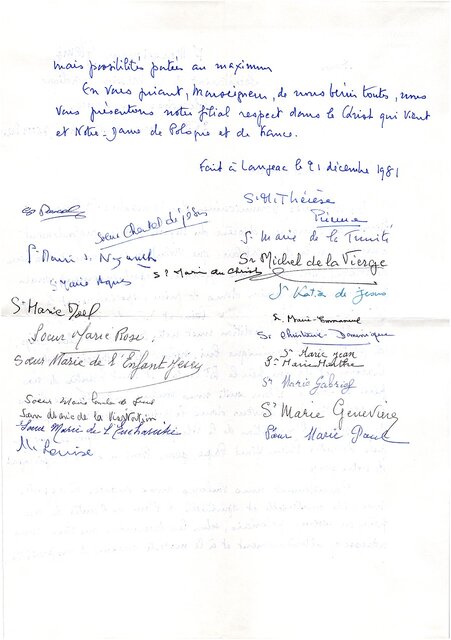 mais possibilités portées au maximum
En vous priant, Monseigneur, de nous bénir toutes, nous
vous présentons notre filial respect dans le Christ qui vient
et Notre-Dame de Pologne et de France.
Fait à Langeac le 21 décembre 1981
Sr M. Thérèse
Prieure
Soeur Chantal de Jésus
Sr Marie de la Trinité
Sr Marie d. Nazareth
Sr Michel de la Vierge
Sr Marie du Christ
Sr Marie Agnès
Sr Katia de Jésus
Sr Marie Noël
Sr Marie-Emmanuel
Soeur Marie Rose.
Sr Christiane-Dominique
Sr Marie Jean
Soeur Marie de l'Enfant Jésus
Sr Marie Marthe
Sr Marie Gabriel
Soeur Marie
Sr Marie Geneviève
Soeur Marie de la
Soeur Marie de l'Eucharistie
Soeur Marie Paul
M. Louise